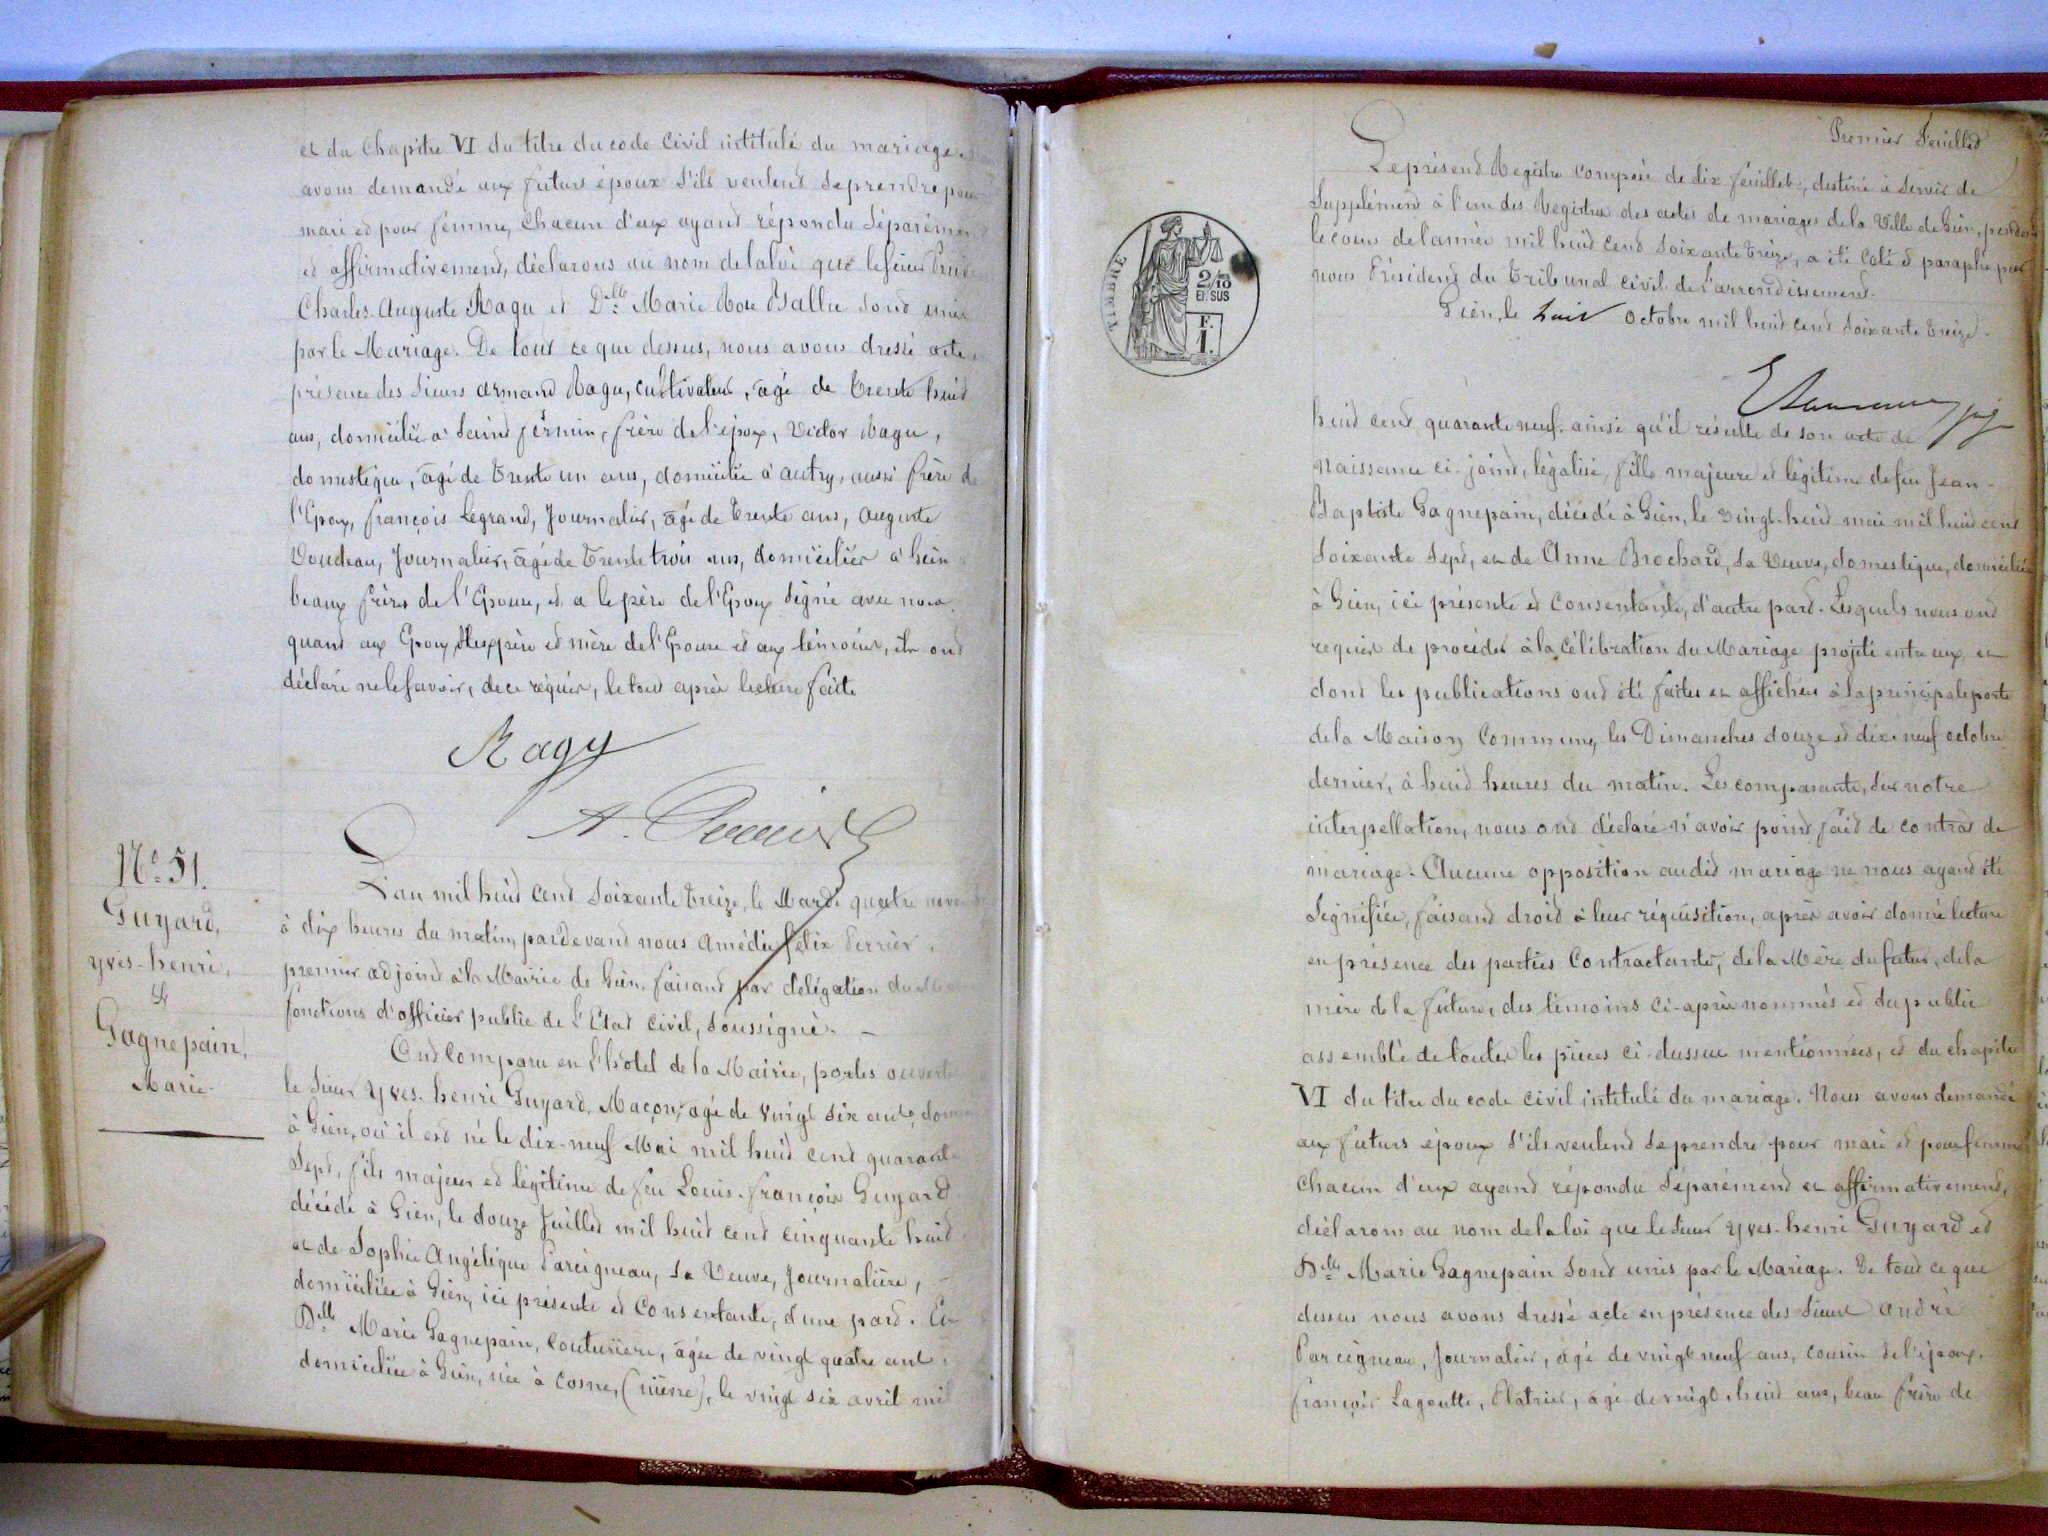 et du Chapitre VI du titre du code Civil intitulé du mariage
avons demandé aux futurs époux s'ils veulent se prendre pour
mari et pour femme, Chacun d'eux ayant répondu séparément
et affirmativement, déclarons au nom de la loi que le sieur
Charles-Auguste Ragu et Delle Marie Rose Ballu sont unis
par le Mariage. De tout ce que dessus, nous avons dressé acte
présence des Sieurs armand Ragu, cultivateur, âgé de trente huit
ans, domicilié à Saint firmin, frère de l'époux, Victor Ragu,
domestique, âgé de trente un ans, domicilié à autry, aussi frère de
l'Epoux, françois Legrand, Journalier, âgé de trente ans, Auguste
Journalier, âgé de trente trois ans, domiciliés à Gien
beaux frères de l'Epouse, et a le père de l'Epoux signé avec nous
quant aux Epoux, père et mère de l'Epouse et aux témoins, ils ont
déclaré ne le savoir, de ce requis, le tout après lecture faite
Ragu
A.
No 51.
Guyard,
yves-henri,
&
Gagnepain,
Marie.
L'an mil huit cent soixante treize, le Mardi quatre
à dix heures du matin, pardevant nous Amédée felix Perrier,
premier adjoint à la Mairie de Gien, faisant par délégation du
fonctions d'officier public de l'Etat civil, soussigné. —
Ont Comparu en l'hôtel de la Mairie, portes ouvertes
le Sieur Yves-henri Guyard, Maçon, âgé de vingt six ans,
à Gien, où il est né le dix-neuf Mai mil huit cent quarante
sept, fils majeur et légitime de feu Louis-françois Guyard
décédé à Gien, le douze Juillet mil huit cent cinquante huit
et de Sophie Angélique Parcigneau, sa Veuve, Journalière,
domiciliée à Gien, ici présente et consentante, d'une part. Et
Delle Marie Gagnepain, couturière, âgée de vingt quatre ans
domiciliée à Gien, née à Cosne, (nièvre), le vingt six avril mil
Premier feuillet
Le présent Registre composé de dix feuillets, destiné à servir de
Supplément à l'un des Registres des actes de mariages de la Ville de Gien, pendant
le cours de l'année mil huit cent soixante treize, a été coté et paraphé par
nous Président du Tribunal civil de l'arrondissement.
Gien, le huit Octobre mil huit cent soixante treize.
TIMBRE
2/10
EN SUS
F.
1.
huit cent quarante neuf, ainsi qu'il résulte de son acte de
naissance ci-joint, légalisé, fille majeure et légitime de feu Jean-
Baptiste Gagnepain, décédé à Gien, le vingt-huit mai mil huit cent
soixante sept, et de Anne Brochard, sa Veuve, domestique, domiciliée
à Gien, ici présente et consentante, d'autre part. Lesquels nous ont
requis de procéder à la célébration du Mariage projeté entre eux, et
dont les publications ont été faites et affichées à la principale porte
de la Maison Commune, les Dimanches douze et dix neuf octobre
dernier, à huit heures du matin. Les comparants, sur notre
interpellation, nous ont déclaré n'avoir point fait de contrat de
mariage. Aucune opposition audit mariage ne nous ayant été
signifiée, faisant droit à leur réquisition, après avoir donné lecture
en présence des parties Contractantes, de la Mère du futur, de la
mère de la future, des témoins ci-après nommés et du public
assemblé de toutes les pièces ci-dessus mentionnées, et du chapitre
VI du titre du code civil intitulé du mariage. Nous avons demandé
aux futurs époux s'ils veulent se prendre pour mari et pour femme
chacun d'eux ayant répondu séparément et affirmativement,
déclarons au nom de la loi que le sieur Yves-henri Guyard et
Delle Marie Gagnepain sont unis par le Mariage. De tout ce que
dessus nous avons dressé acte en présence des sieurs André
Parcigneau, Journalier, âgé de vingt neuf ans, cousin de l'époux,
françois Lagoutte, Plâtrier, âgé de vingt huit ans, beau frère de